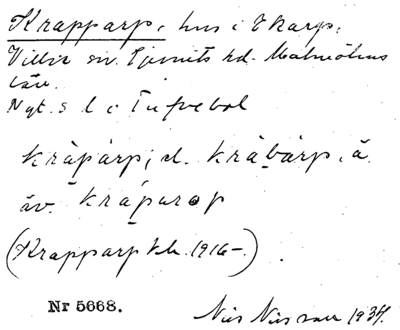 Krapparp, hus i Ekarp,
Villie sn. Ljunits hd. Malmöhus
län.
Nyt. s l i Tufvebol
kràpàrp, d. kràbàrp, ä.
äv. kràparop
(Krapparp kb. 1916-.)
Nr 5668.
Nils Nilsson 1934.